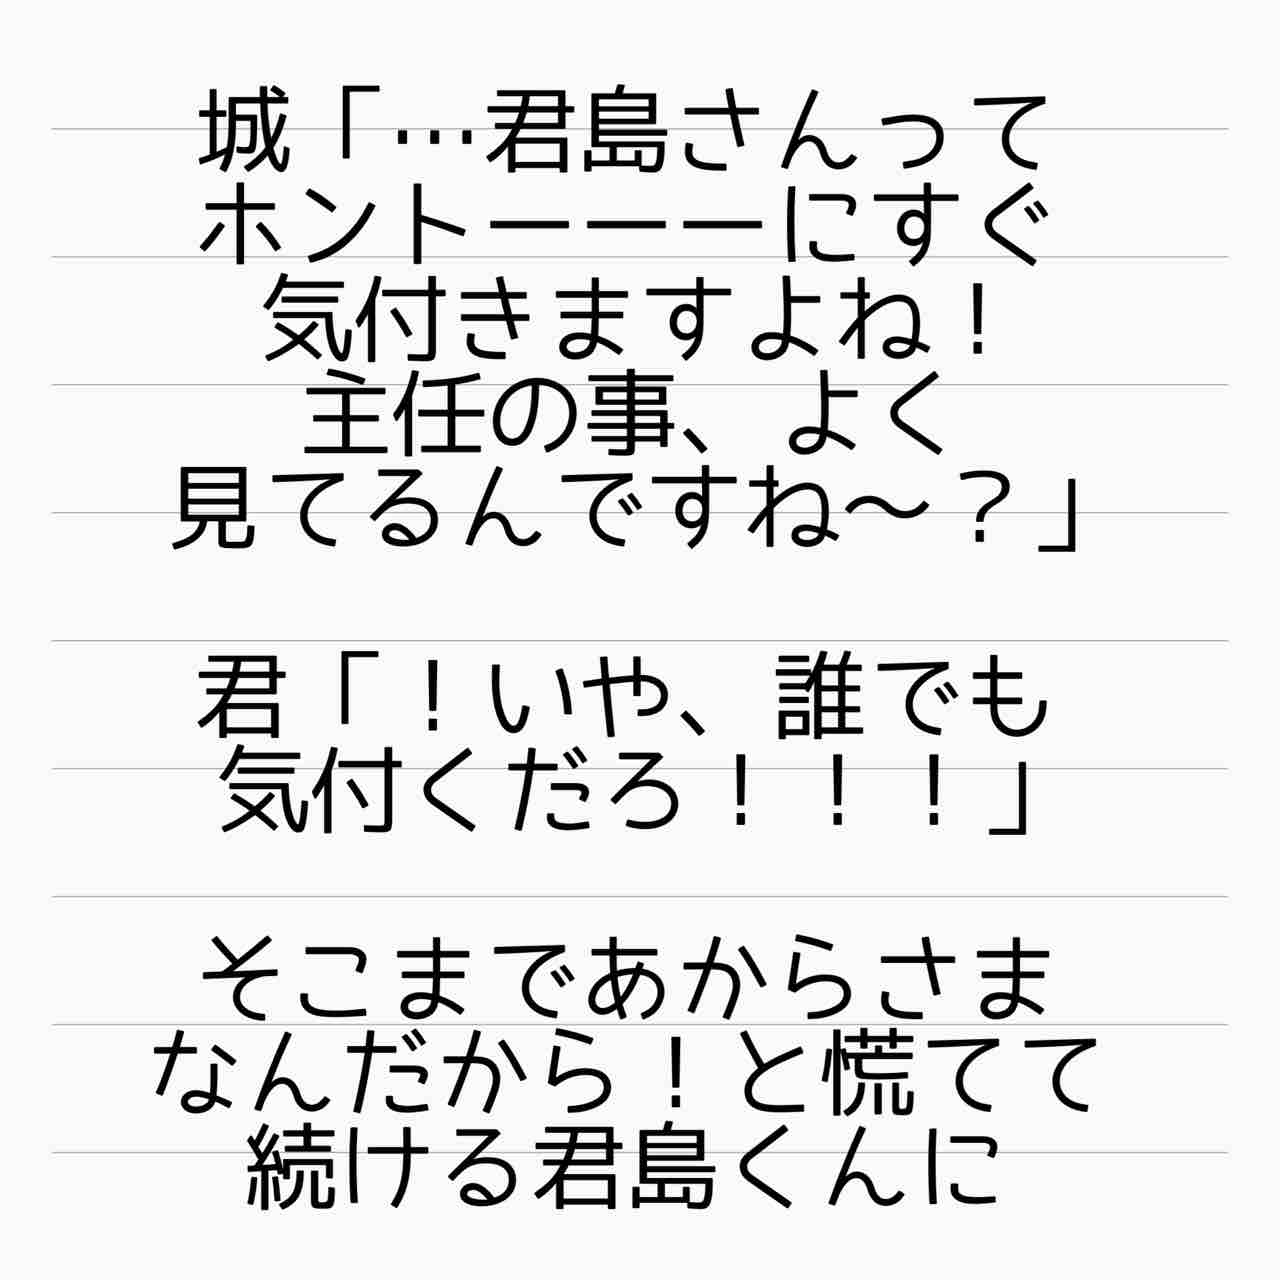 城「…君島さんって
ホントーーーにすぐ
気付きますよね！
主任の事、よく
見てるんですね〜？」
君「！いや、誰でも
気付くだろ！！！」
そこまであからさま
なんだから！と慌てて
続ける君島くんに